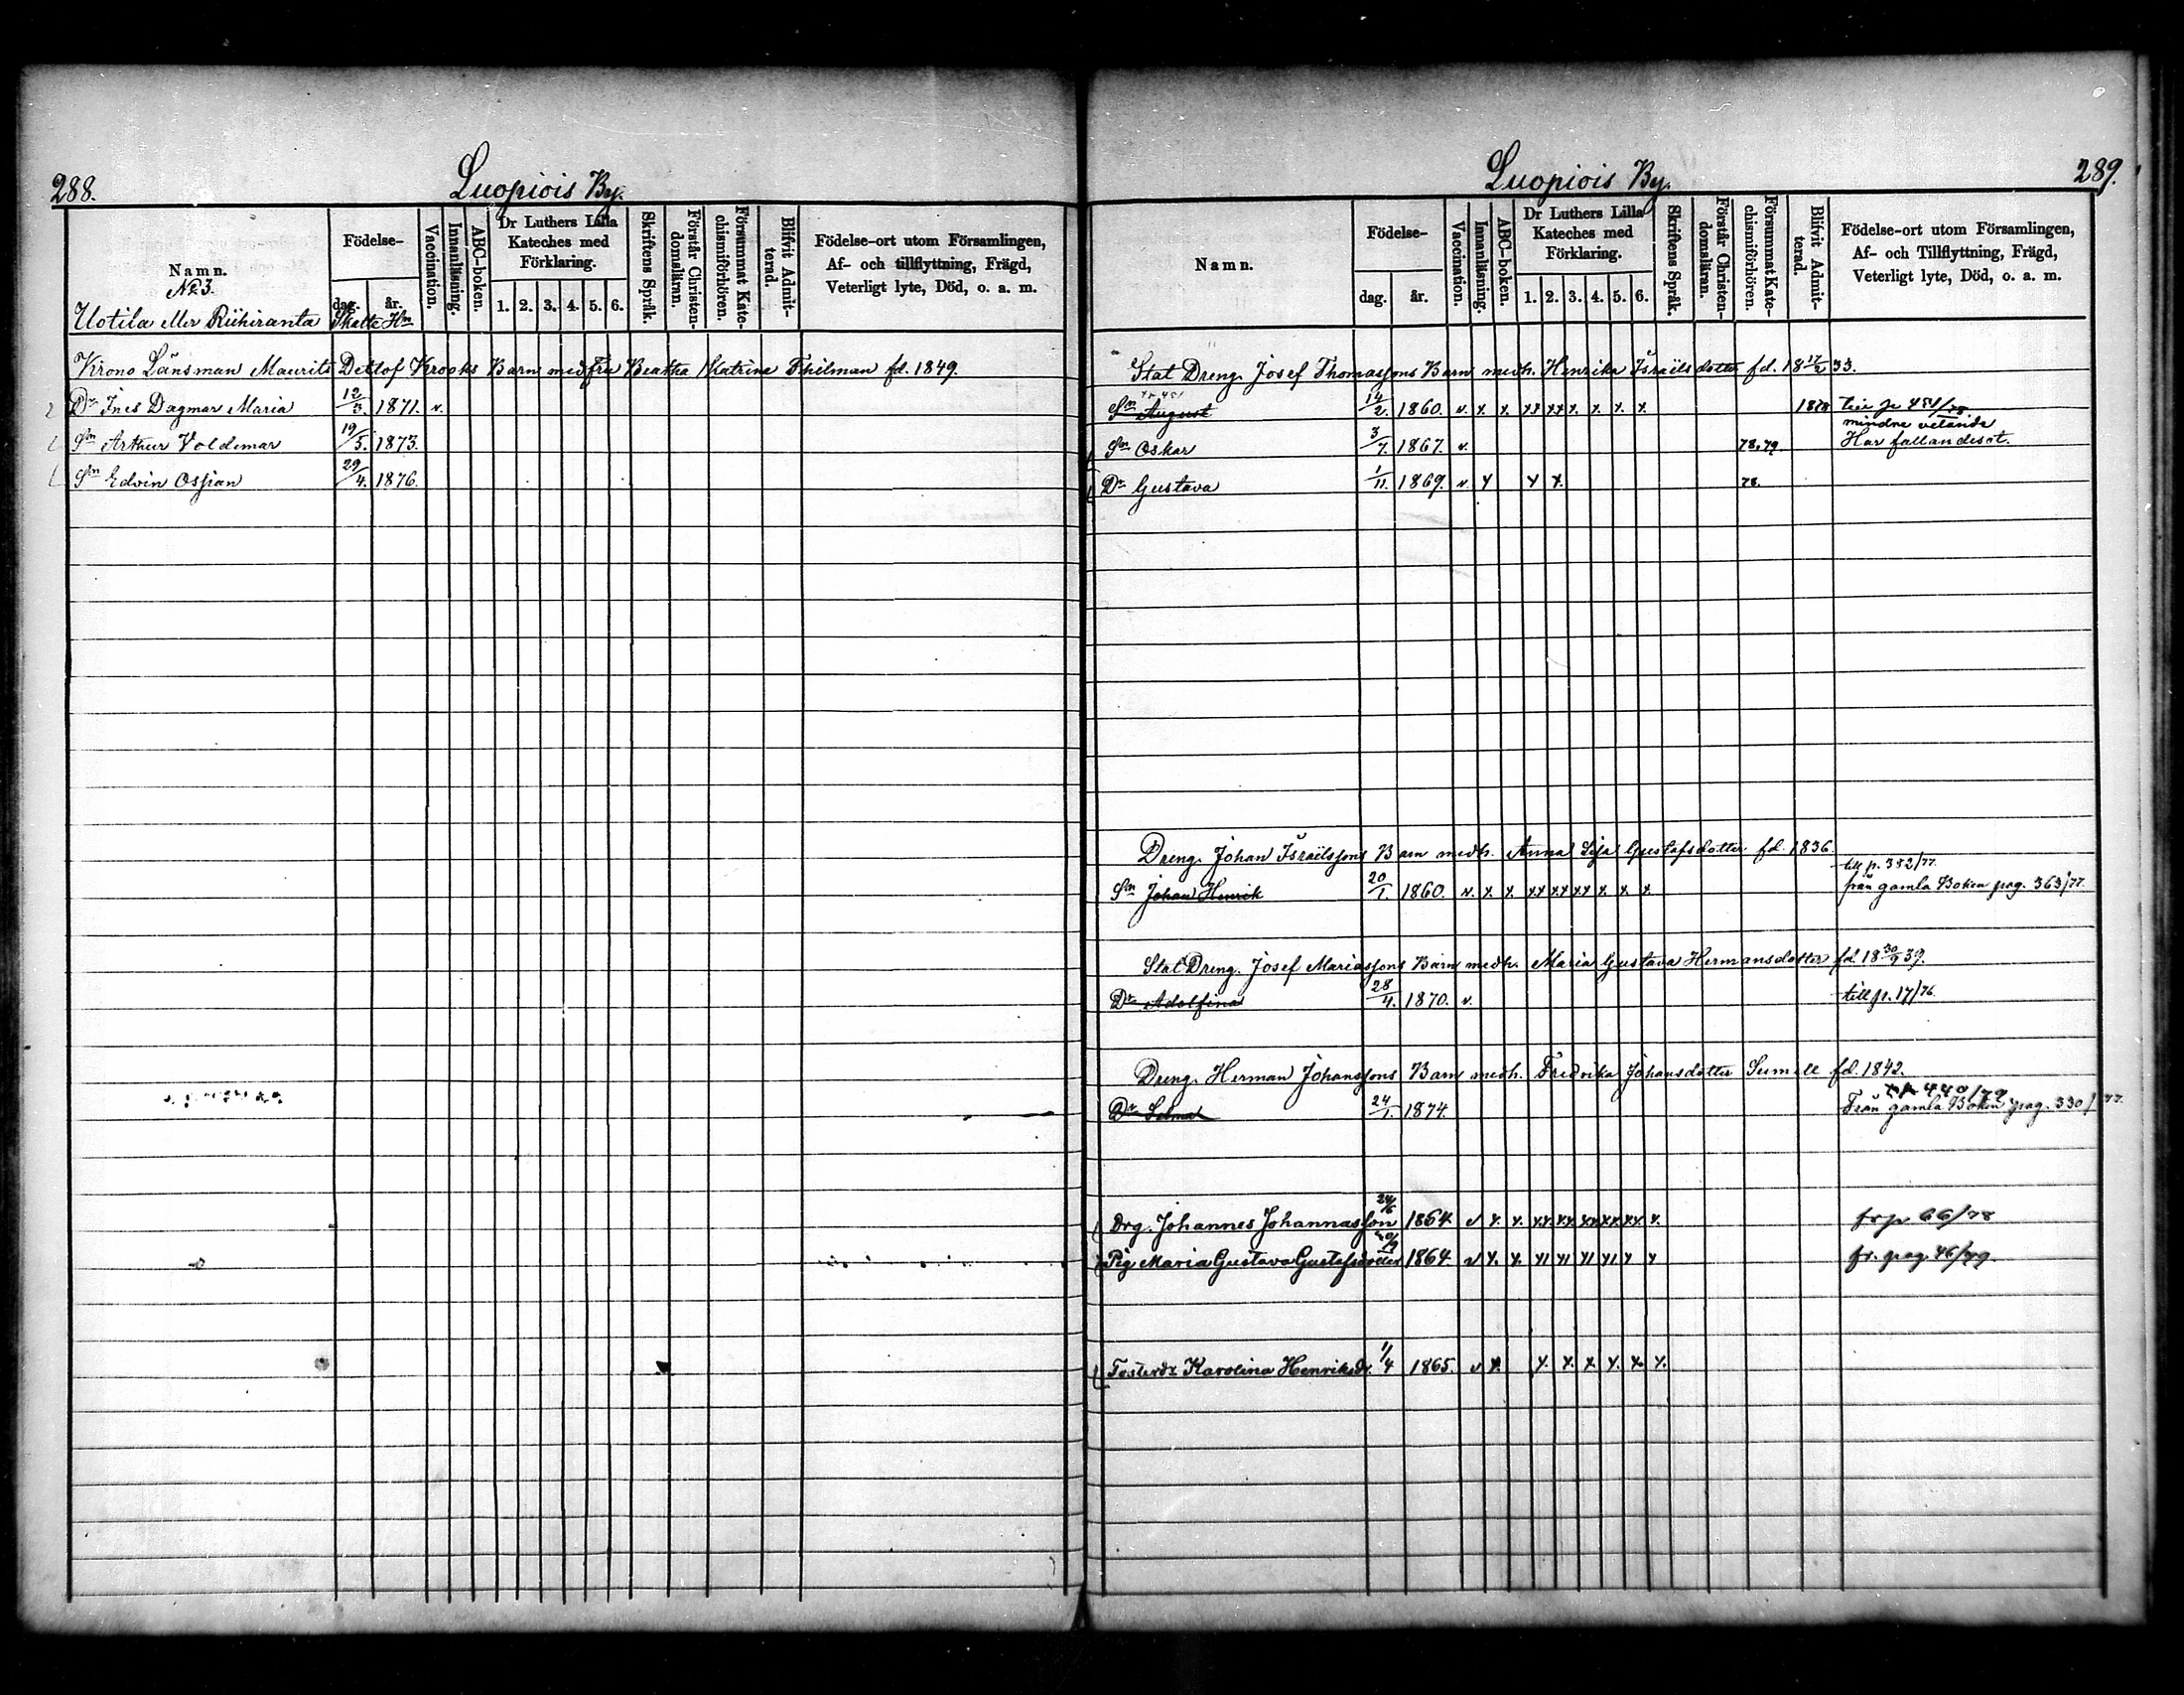 288.
Luopiois By.
Namn.
No 3.
Uotila eller Riihiranta Skatte Hn
Födelse-
dag. år.
Vaccination.
Innanläsning.
ABC-boken.
Dr Luthers Lilla Kateches med Förklaring.
1. 2. 3. 4. 5. 6.
Skriftens Språk.
Förstår Christendomsläran.
Försummat Katechismiförhören.
Blifvit Admitterad.
Födelse-ort utom Församlingen,
Af- och tillflyttning, Frägd,
Veterligt lyte, Död, o. a. m.
Krono Länsman Maurits Detlof Krooks Barn med Fru Beatha Katrina Thilman fd. 1849.
Dr Ines Dagmar Maria 12/3. 1871. v.
Sn Arthur Voldemar 19/5. 1873.
Sn Edvin Ossian 29/4. 1876.
Luopiois By.
289.
Namn.
Födelse-
dag. år.
Vaccination.
Innanläsning.
ABC-boken.
Dr Luthers Lilla Kateches med Förklaring.
1. 2. 3. 4. 5. 6.
Skriftens Språk.
Förstår Christendomsläran.
Försummat Katechismiförhören.
Blifvit Admitterad.
Födelse-ort utom Församlingen,
Af- och Tillflyttning, Frägd,
Veterligt lyte, Död, o. a. m.
Stat Dreng. Josef Thomassons Barn medh. Henrika Israilsdotter fd. 18 17/2 33.
Sn August 14/2. 1860. v. x x xx xx x. x. x. x. 1878
mindre vetande
Sn Oskar 3/7. 1867. v. 78, 79. Har fallandesot.
Dr Gustava 1/11. 1869. v. x x x 78.
Dreng. Johan Israilssons Barn medh. Anna Lisa Gustafsdotter fd. 1836.
till p. 382/77.
Sn Johan Henrik 20/1. 1860. v. x x xx xx xx x. x. x från gamla Boken pag. 363/77.
Stat Dreng. Josef Mariassons Barn medh. Maria Gustava Hermansdotter fd 18 30/9 39.
Dr Adolfina 28/4. 1870. v. till p. 17/76.
Dreng. Herman Johanssons Barn medh. Fredrika Johansdotter Sumell fd. 1842.
440/79
Dr Selma 24/1. 1874. Från gamla Boken pag. 330/77.
Drg. Johannes Johannasson 24/6 1864 v x. x. xx xx xx xx xx x. fr p 66/78
Pig Maria Gustava Gustafsdotter 1864. v x. x. fr. pag. 46/79.
Fosterdr Karolina Henriksdr. 1/4 1865. v x. x. x. x. x. x. x.